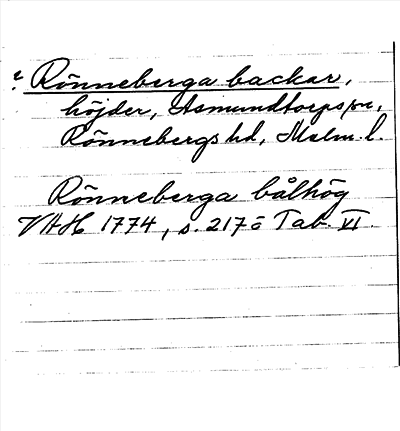 ? Rönneberga backar,
höjder, Asmundtorps sn,
Rönnebergs hd, Malm. l.
Rönneberga bålhög
VAH 1774, s. 217 o Tab. VI.